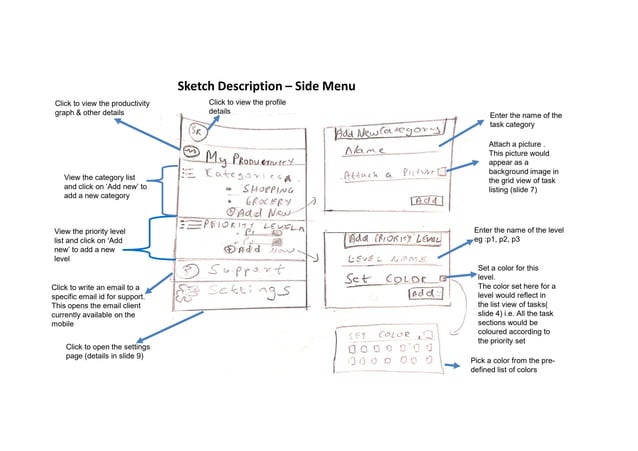 Sketch Description – Side Menu
Click to view the productivity
graph & other details
Click to view the profile
details
View the category list
and click on ‘Add new’ to
add a new category
View the priority level
list and click on ‘Add
new’ to add a new
level
Click to write an email to a
specific email id for support.
This opens the email client
currently available on the
mobile
Click to open the settings
page (details in slide 9)
SR
My PRODUCTIVITY
Categories
SHOPPING
GROCERY
Add New
PRIORITY LEVEL
P1
Add New
? Support
Settings
Add New Category
Name
Attach a Picture
Add
Add PRIORITY LEVEL
LEVEL NAME
Set COLOR
Add
SET COLOR
Enter the name of the
task category
Attach a picture .
This picture would
appear as a
background image in
the grid view of task
listing (slide 7)
Enter the name of the level
eg :p1, p2, p3
Set a color for this
level.
The color set here for a
level would reflect in
the list view of tasks(
slide 4) i.e. All the task
sections would be
coloured according to
the priority set
Pick a color from the pre-
defined list of colors